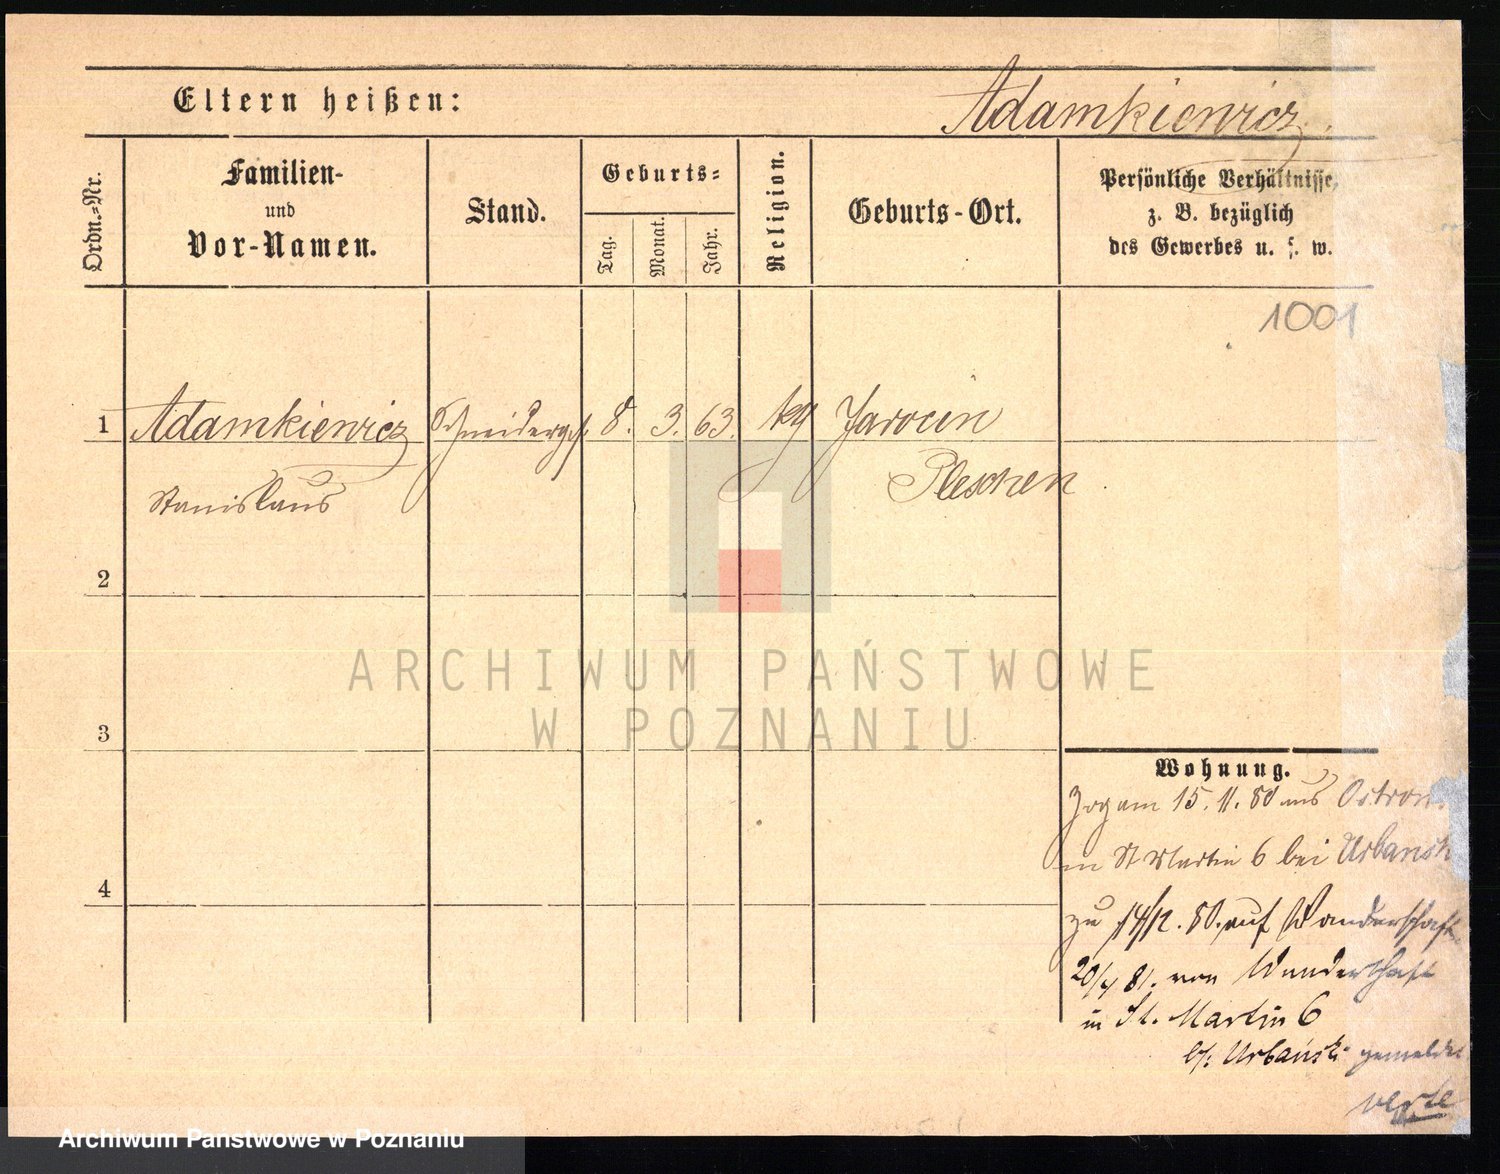 Eltern heißen:
Adamkiewicz
Ordn.=Nr.
Familien-
und
Vor-Namen.
Stand.
Geburts=
Tag.
Monat.
Jahr.
Religion.
Geburts-Ort.
Persönliche Verhältnisse,
z. B. bezüglich
des Gewerbes u. s. w.
1001
1 Adamkiewicz Schneiderges. 8. 3. 63. kg Jarocin
Stanislaus Pleschen
2
3
4
ARCHIWUM PAŃSTWOWE
W POZNANIU
Wohnung.
Zog am 15. 11. 80 aus Ostrow
in St Martin 6 bei Urbansk
zu 14/12. 80. auf Wanderschaft
20/4 81. von Wanderschaft
in St. Martin 6
b/: Urbański gemeldet
verte
Archiwum Państwowe w Poznaniu